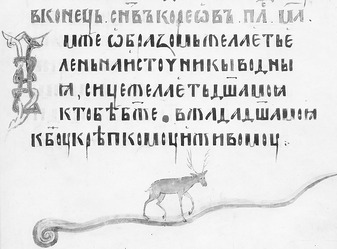 вконець. сн҃въ кореѡвъ. п҃л. м҃а.
Имже ѡбразомь желаеть е
лень на источникы водны
ꙗ, сице желаеть дш҃а моꙗ
к тобѣ б҃же. вжада дш҃а моꙗ
к б҃оу крѣпкомоу живомоу.